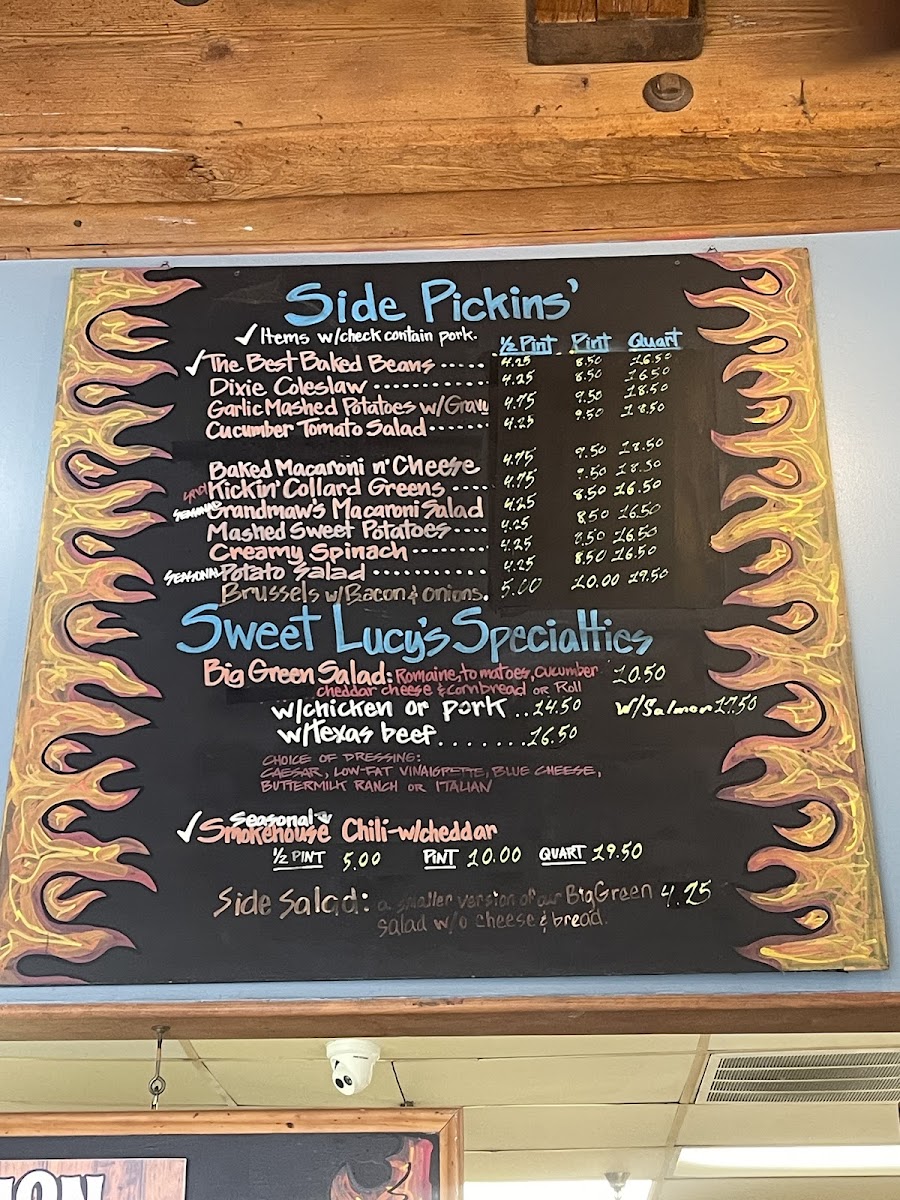 Side Pickins'
✓ Items w/check contain pork.
½ Pint Pint Quart
✓ The Best Baked Beans ...... 4.25 8.50 16.50
Dixie Coleslaw ............... 4.25 8.50 16.50
Garlic Mashed Potatoes w/Gravy 4.75 9.50 18.50
Cucumber Tomato Salad ....... 4.25 9.50 18.50
Baked Macaroni n' Cheese 4.75 9.50 18.50
Kickin' Collard Greens ..... 4.75 9.50 18.50
Grandmaw's Macaroni Salad 4.25 8.50 16.50
Mashed Sweet Potatoes ..... 4.25 8.50 16.50
Creamy Spinach ........... 4.25 8.50 16.50
SEASONAL Potato Salad ............... 4.25 8.50 16.50
Brussels w/Bacon & onions. 5.00 10.00 19.50
Sweet Lucy's Specialties
Big Green Salad: Romaine, tomatoes, cucumber 10.50
cheddar cheese & cornbread or Roll
w/chicken or pork .. 14.50 w/Salmon 17.50
w/Texas beef ....... 16.50
CHOICE OF DRESSING:
CAESAR, LOW-FAT VINAIGRETTE, BLUE CHEESE,
BUTTERMILK RANCH OR ITALIAN
Seasonal
✓ Smokehouse Chili-w/cheddar
½ PINT 5.00 PINT 10.00 QUART 19.50
Side Salad: a smaller version of our Big Green 4.25
salad w/o cheese & bread.